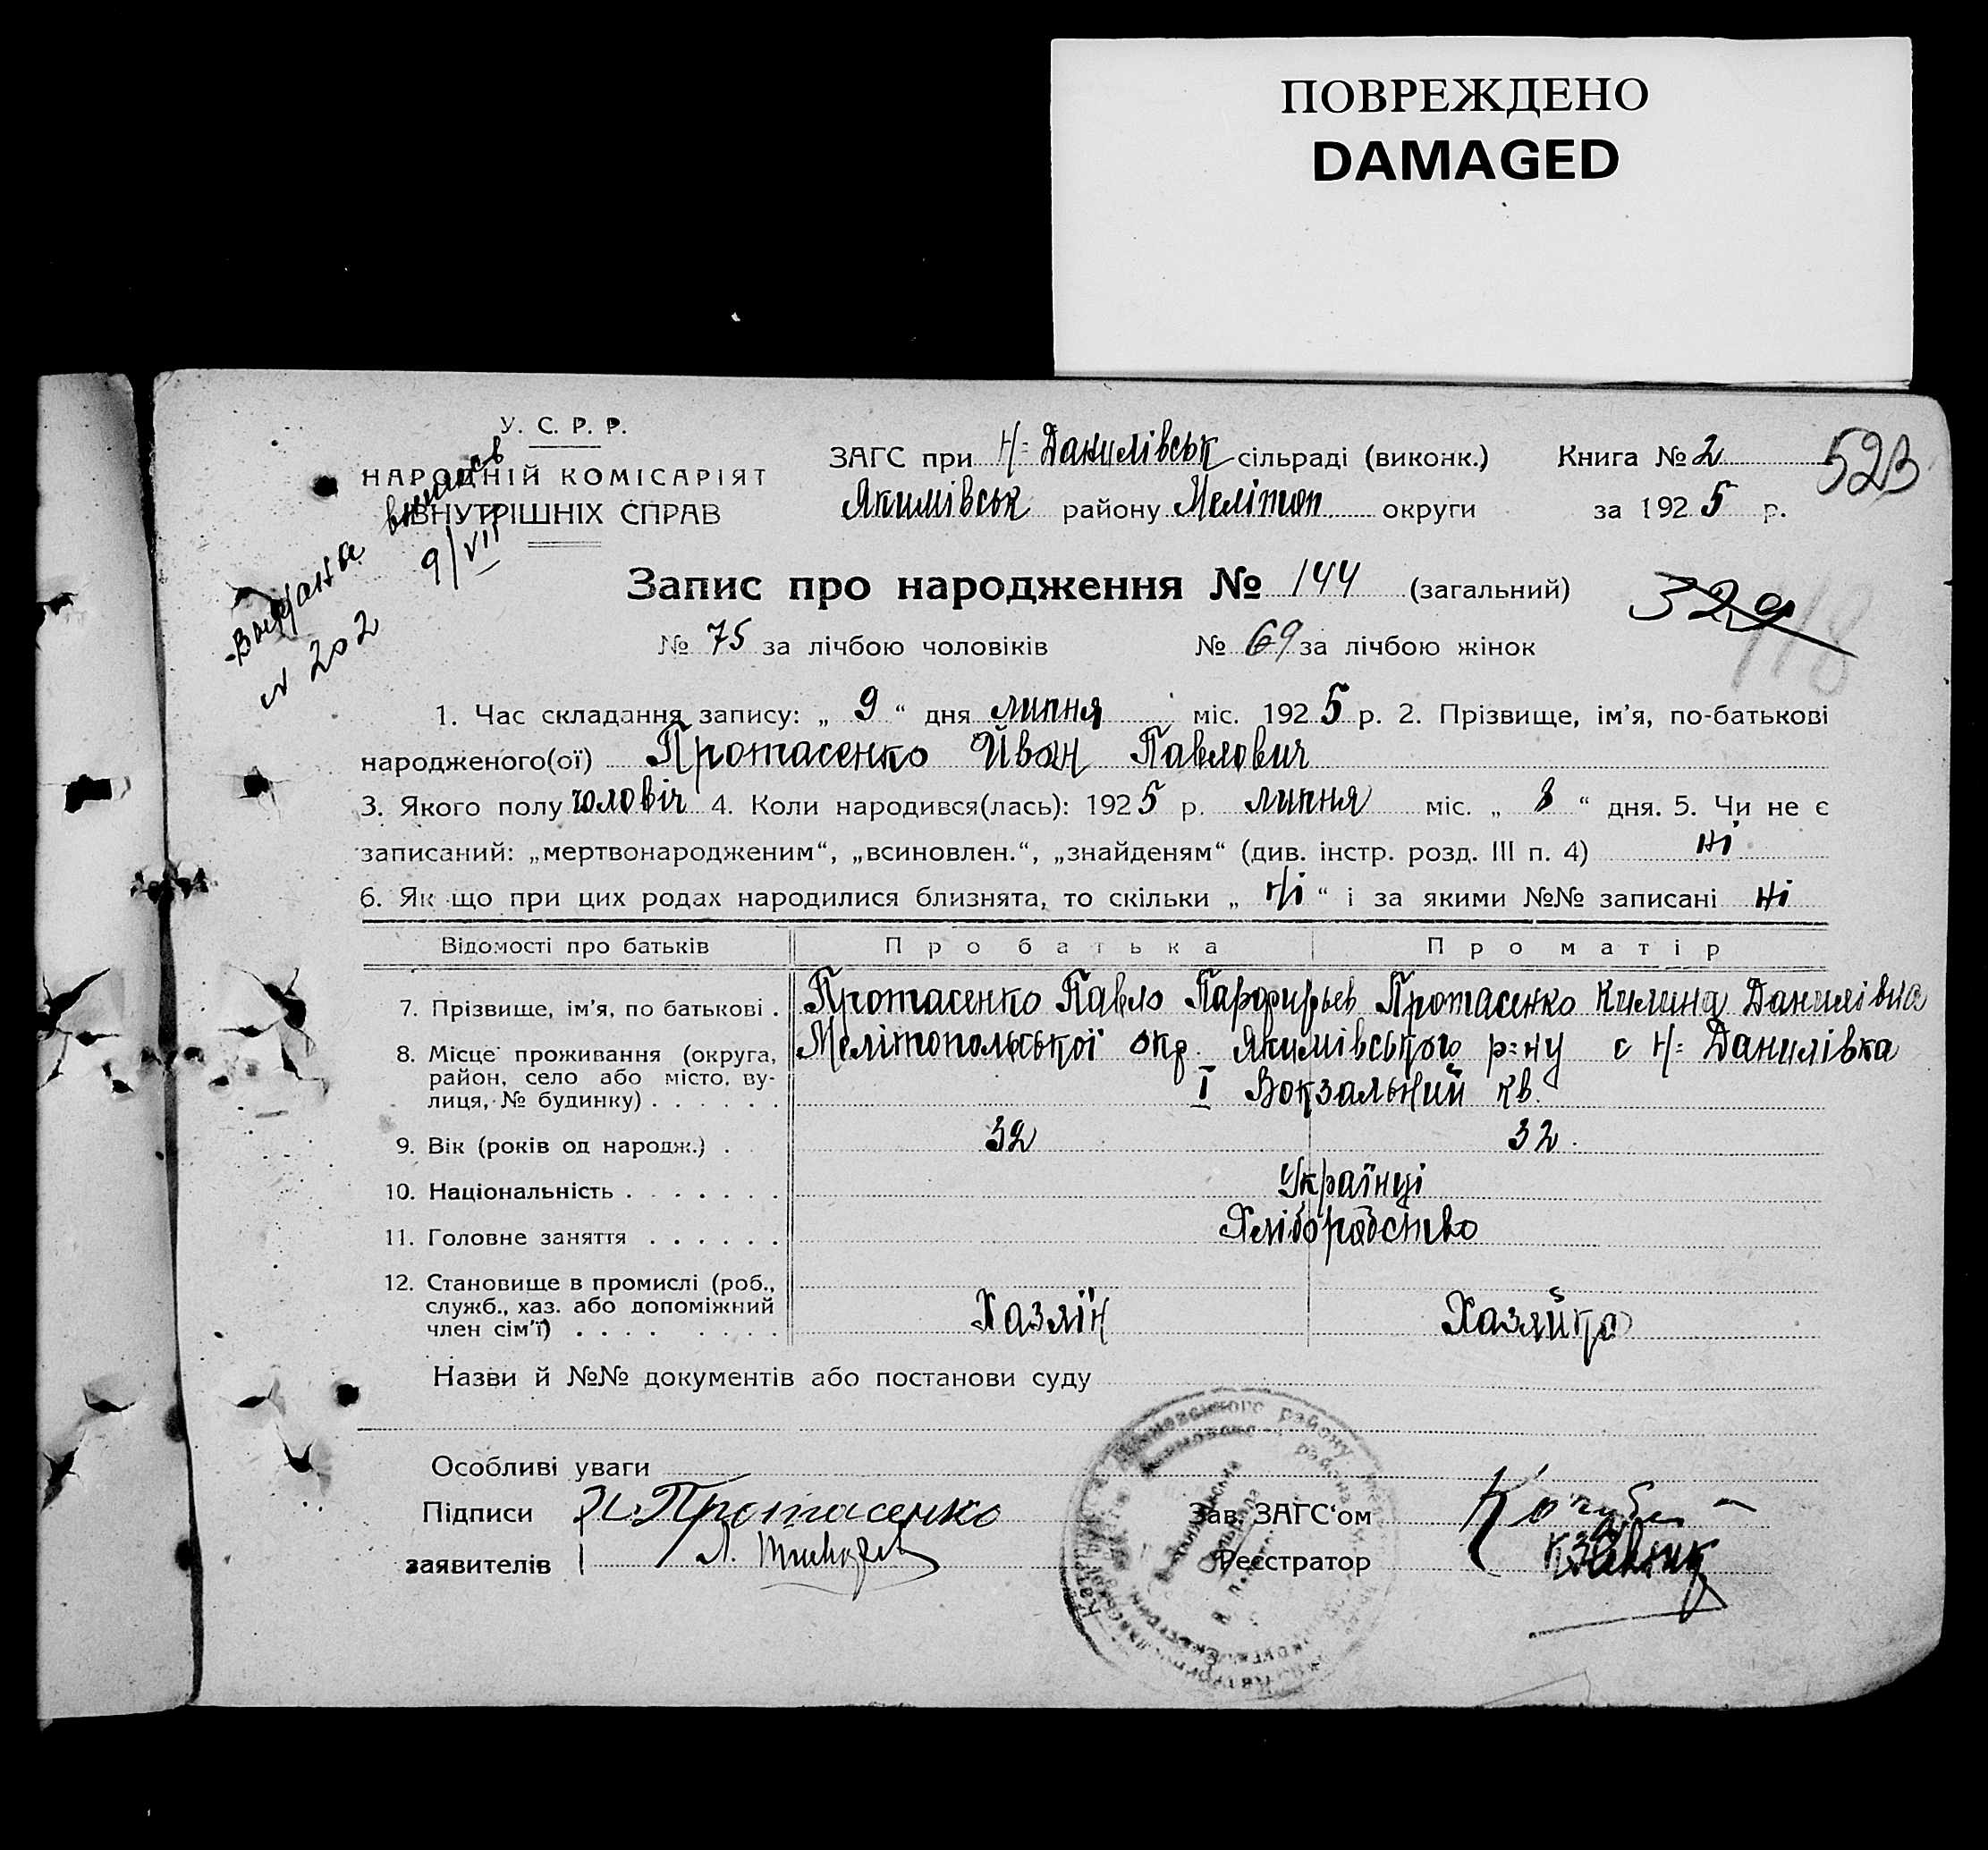 ПОВРЕЖДЕНО
DAMAGED
У. С. Р. Р.
НАРОДНІЙ КОМІСАРІЯТ
ВНУТРІШНІХ СПРАВ
Выдана выпись
9/VII
№ 202
ЗАГС при Н-Данилівськ сільраді (виконк.) Книга № 2
523
Якимівськ району Меліտоп. округи за 1925 р.
Запис про народження № 144 (загальний)
329
118
№ 75 за лічбою чоловіків № 69 за лічбою жінок
1. Час складання запису: „ 9 “ дня липня міс. 1925 р. 2. Прізвище, ім'я, по-батькові
народженого(ої) Протасенко Йван Павлович
3. Якого полу чоловіч 4. Коли народився(лась): 1925 р. липня міс. „ 8 “ дня. 5. Чи не є
записаний: „мертвонародженим“, „всиновлен.“, „знайденям“ (див. інстр. розд. III п. 4) ні
6. Як що при цих родах народилися близнята, то скільки „ ні “ і за якими №№ записані ні
Відомості про батьків Про батька Про матір
7. Прізвище, ім'я, по батькові . Протасенко Павло Парфирьев Протасенко Килина Данилівна
8. Місце проживання (округа, Мелітопольської окр. Якимівського р=ну с Н= Данилівка
район, село або місто, ву-
лиця, № будинку) . . . . . . I Вокзальний кв.
9. Вік (років од народж.) . 32 32.
10. Національність . . . . . . . Українці
11. Головне заняття . . . . . . Хліборобство
12. Становище в промислі (роб.,
служб., хаз. або допоміжний Хазяїн Хазяйка
член сім'ї) . . . . . . . .
Назви й №№ документів або постанови суду
Особливі уваги
Підписи П. Протасенко Зав. ЗАГС'ом
заявителів Реєстратор